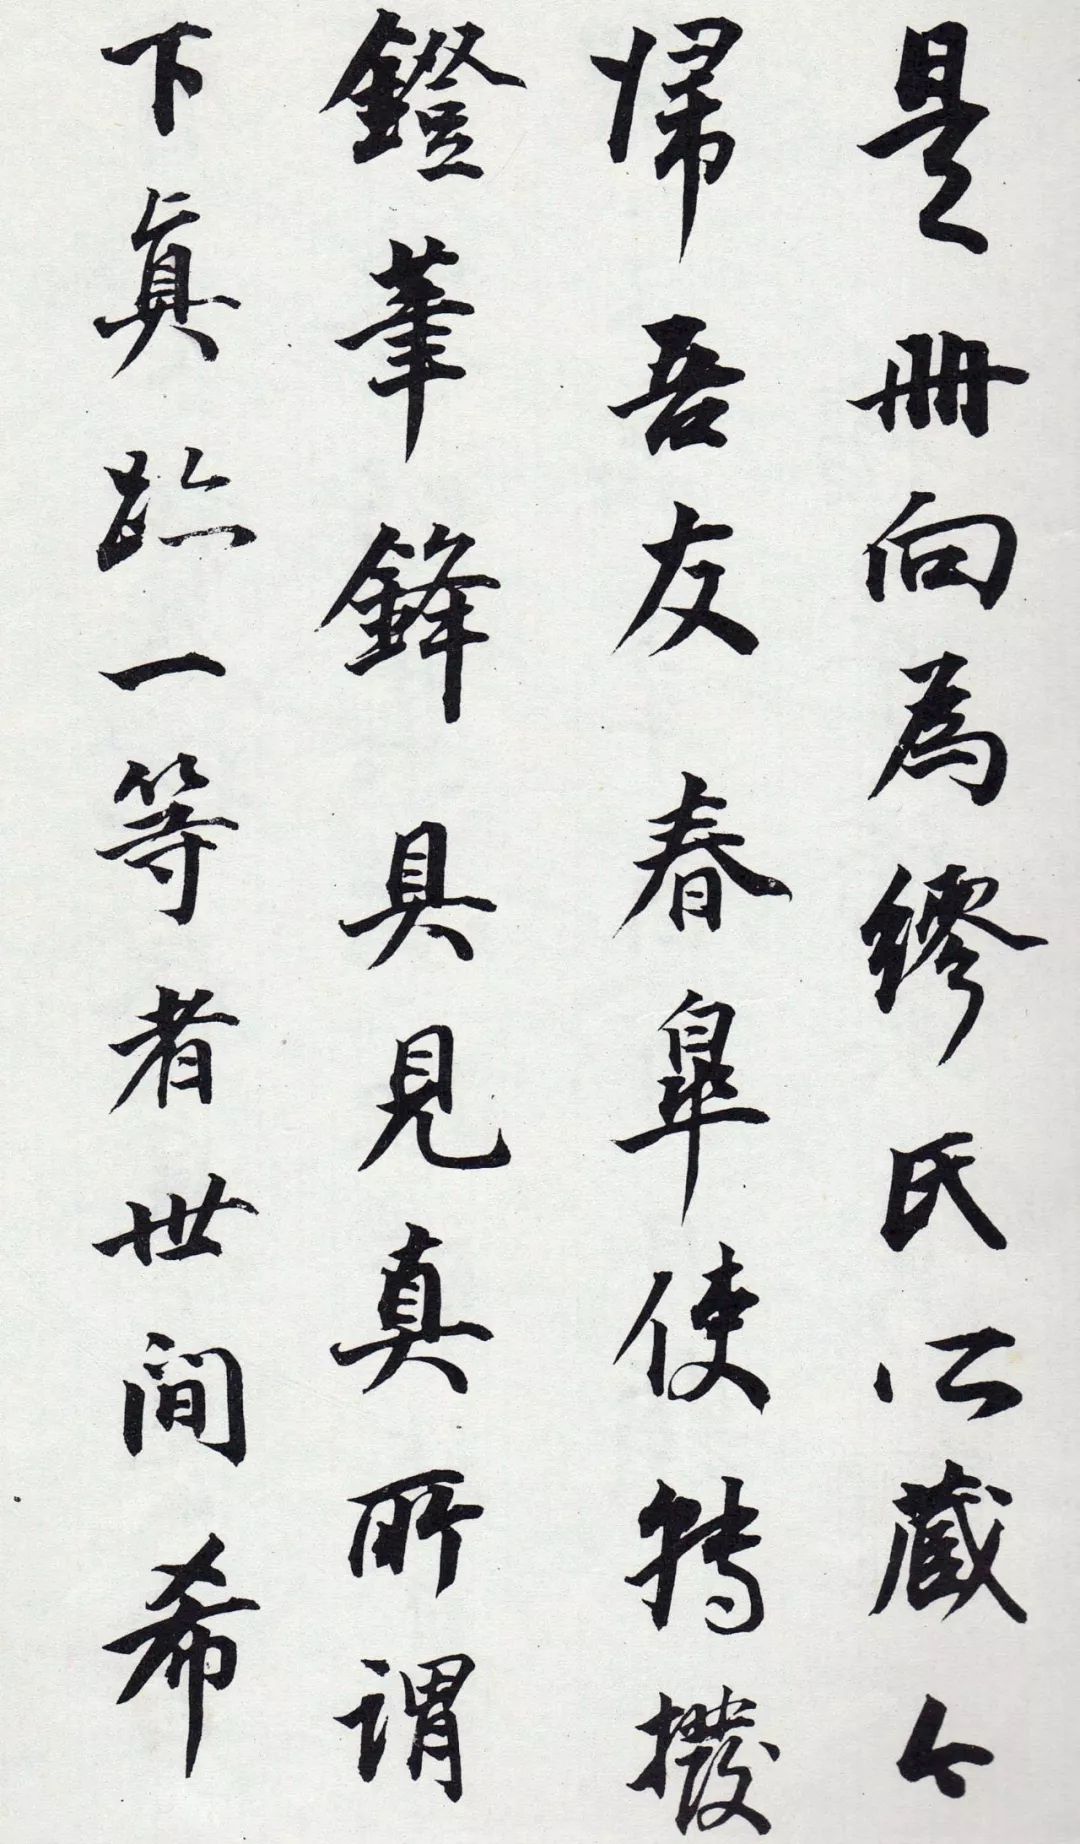 是冊向為繆氏所藏今
歸吾友春皐使轉撥
鐙筆鋒具見真所謂
下眞跡一等者世間希